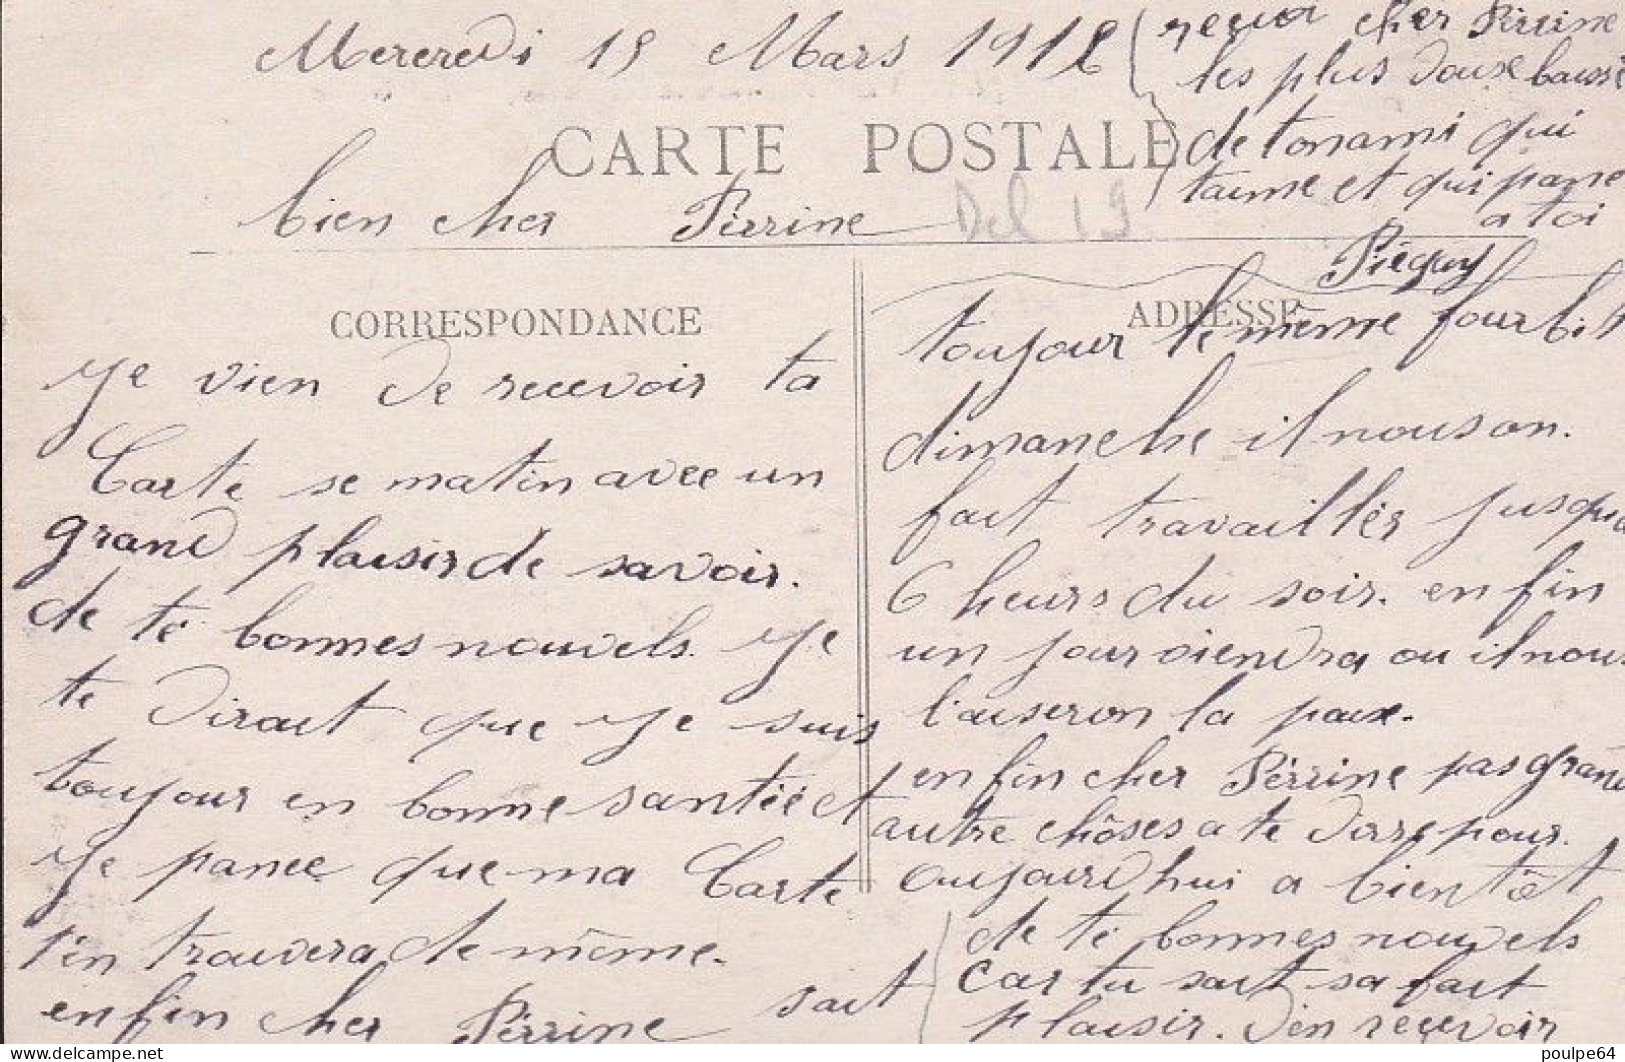 Mercredi 15 Mars 191
CARTE POSTALE
bien cher Pérrine
Del 19
CORRESPONDANCE
Je vien de recevoir ta
Carte se matin avec un
grand plaisir de savoir.
de té bonnes nouvels. Je
te dirait que je suis
toujour en bonne santiéé et
Je pance que ma Carte
t'en trouvera de même.
enfin cher Pérrine sait
ADRESSE
toujour le même fourbit
dimanche il nous on.
fait travaillér jusqua
6 heurs du soir. enfin
un jour viendra ou il nous
l'aiseron la paix.
enfin cher Pérrine pas grand
autre chôses a te dirre pour.
aujourd'hui a bientôt
de té bonnes nouvels
car tu sait sa fait
plaisir. d'en recevoir
reçoi cher Pérrine
les plus doux baisse
de ton ami qui
t'aime et qui pane
a toi
delcampe.net
poulpe64